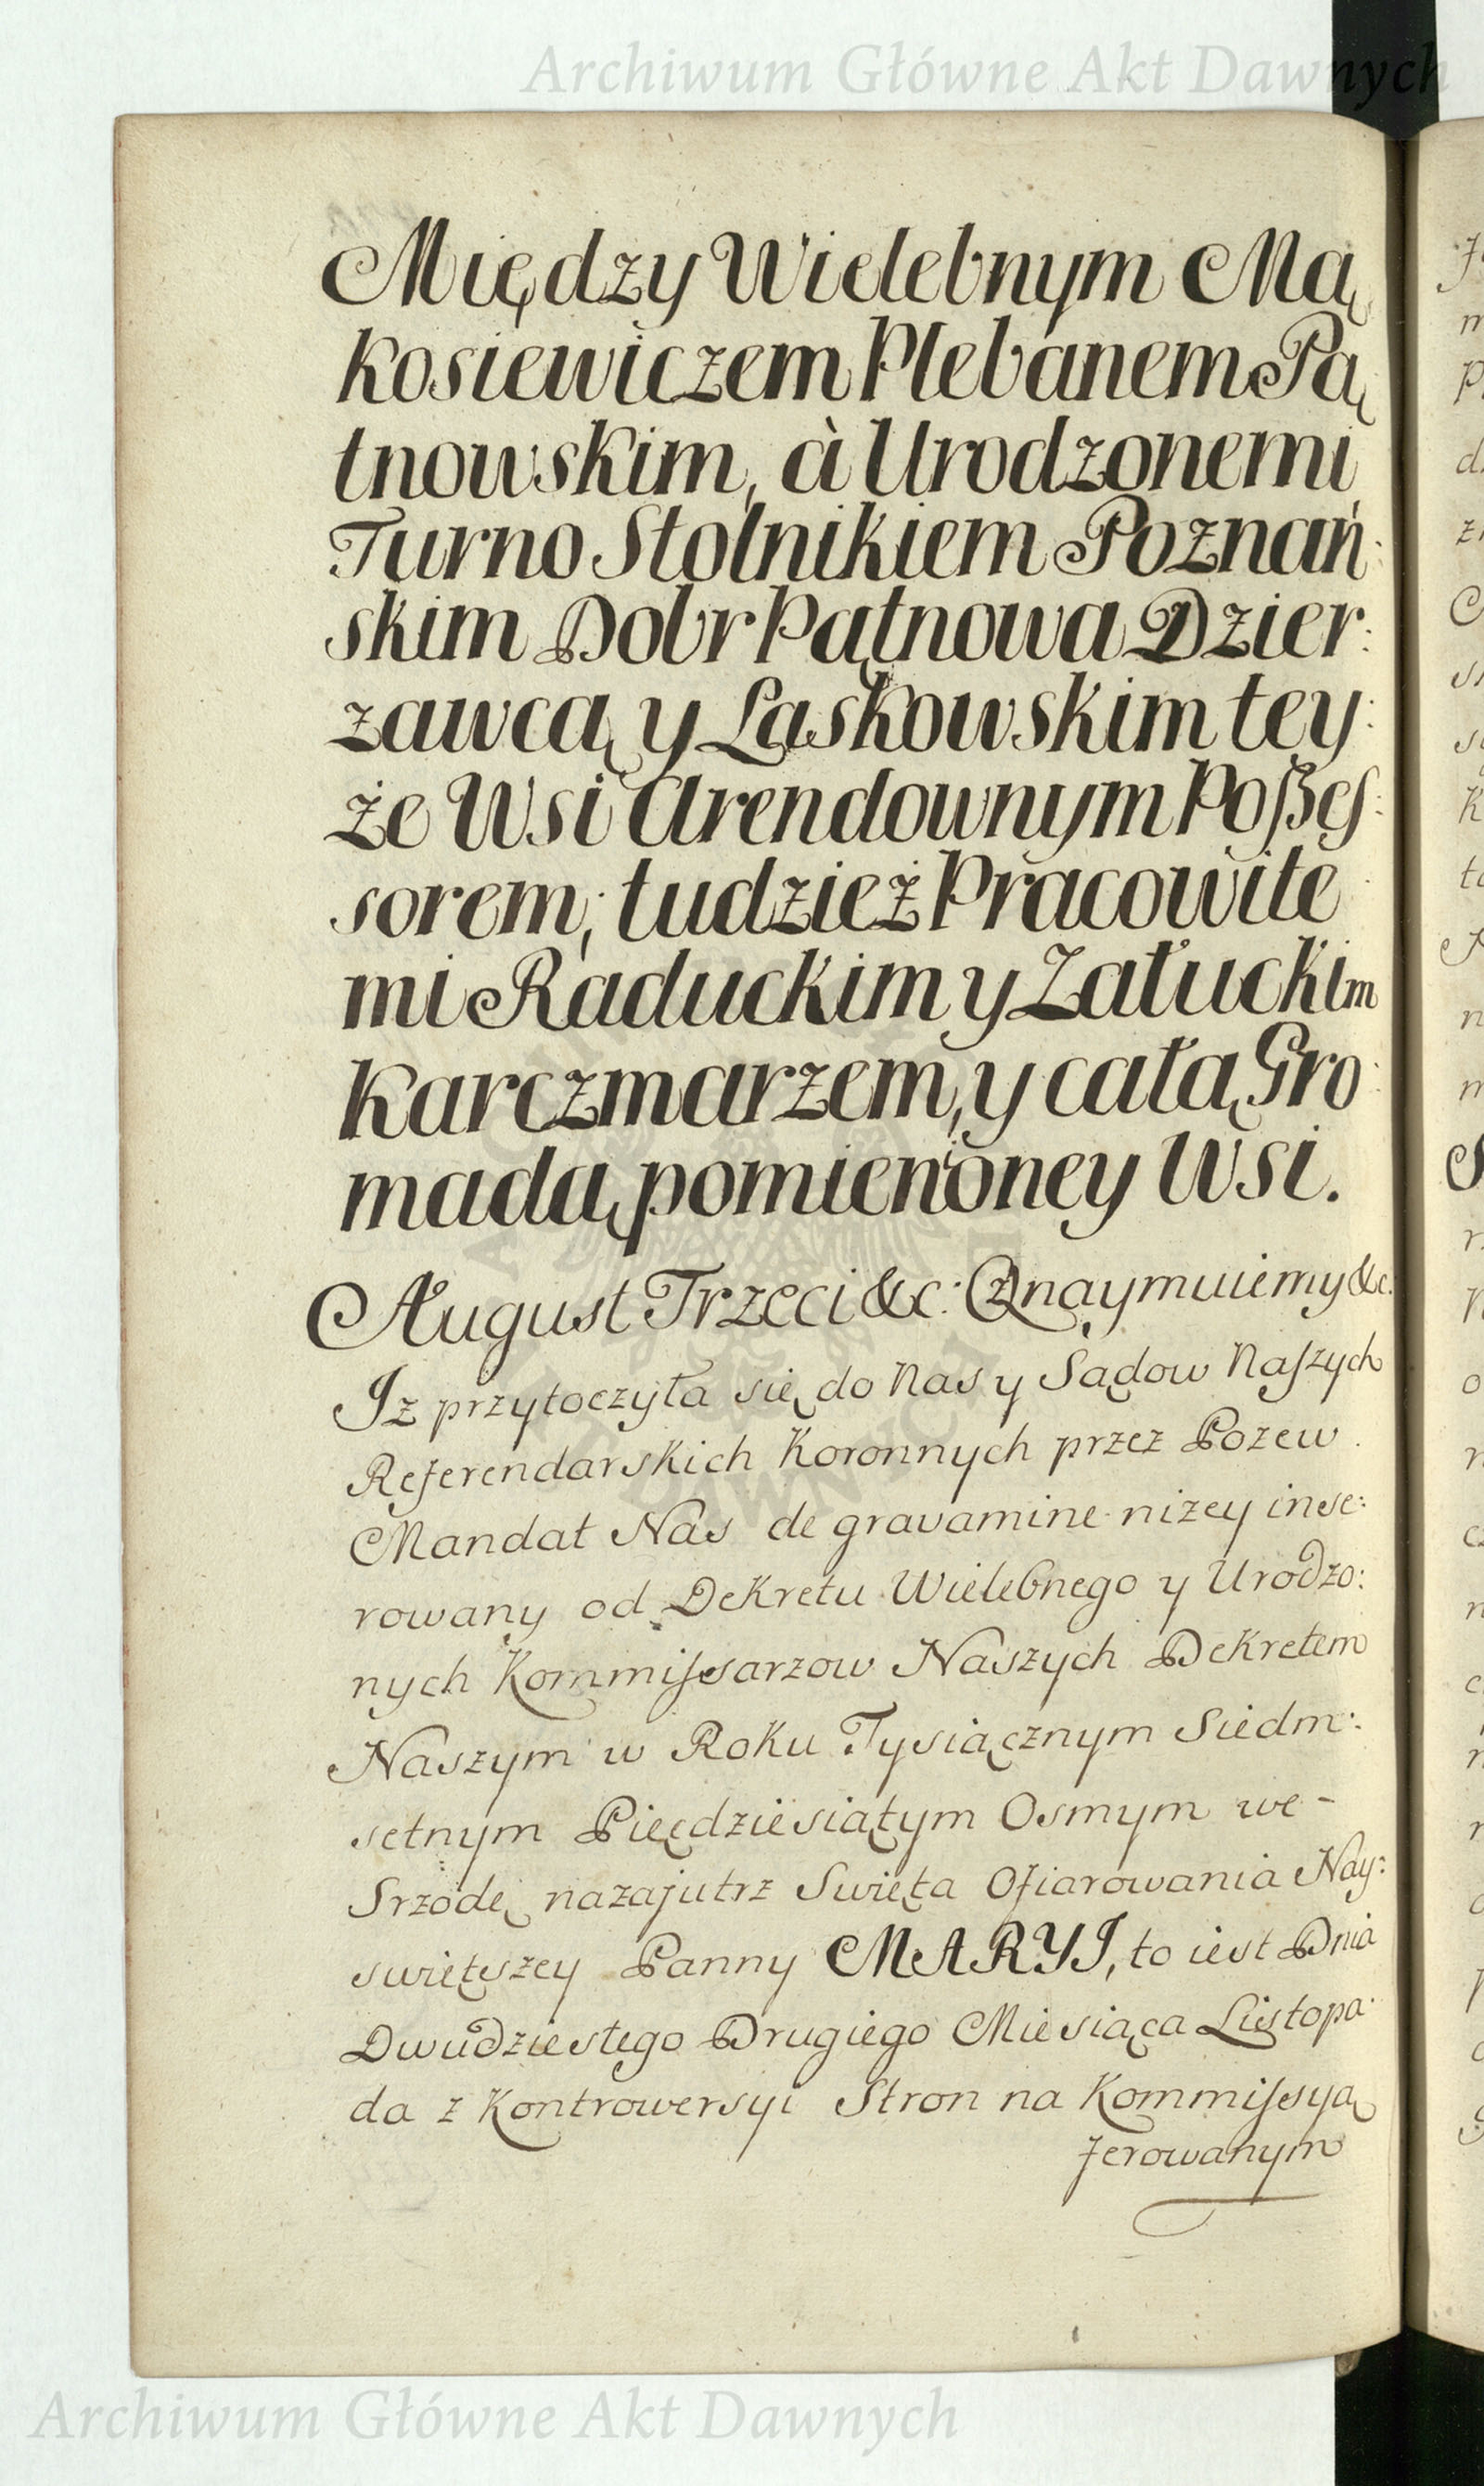 Archiwum Główne Akt Dawnych
Między Wielebnym Mą
kosiewiczem Plebanem Pą
tnowskim, à Urodzonemi
Turno Stolnikiem Poznań:
skim Dobr Pątnowa Dzier:
zawcą y Laskowskim tey:
że Wsi Arendownym Poßes:
sorem, tudzież Pracowite
mi Raduckim y Załuckim
Karczmarzem, y całą Gro:
madą pomienioney Wsi.
August Trzeci &c: Oznaymuiemy &c.
Iz przytoczyła się do Nas y Sądow Naszych
Referendarskich Koronnych przez Pozew
Mandat Nas de gravamine nizey inse:
rowany od Dekretu Wielebnego y Urodzo:
nych Kommissarzow Naszych Dekretem
Naszym w Roku Tysiącznym Siedm:
setnym Pięcdziesiątym Osmym we -
Srzodę nazajutrz Swięta Ofiarowania Nay:
swiętszey Panny MARYI, to iest Dnia
Dwudziestego Drugiego Miesiąca Listopa:
da z Kontrowersyi Stron na Kommissyą
ferowanym
Archiwum Główne Akt Dawnych